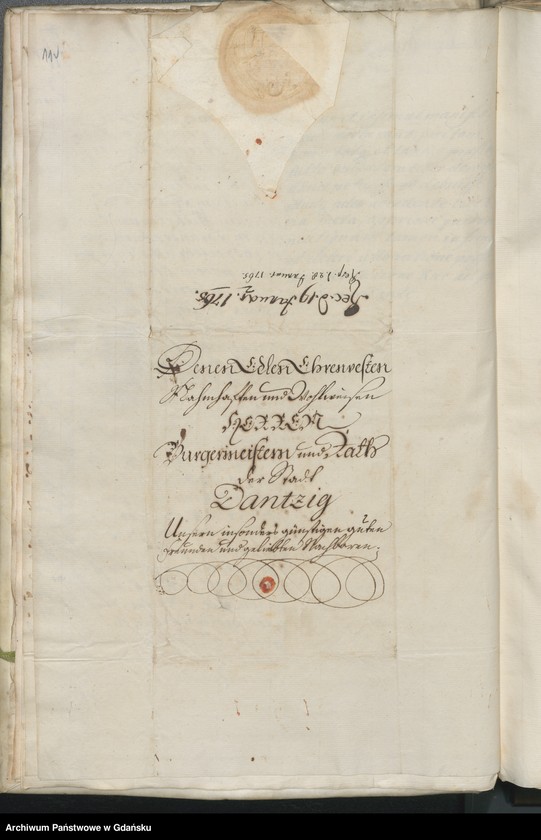 Rec. d. 19 Januar. 1765.
Resp. d. 28. Januar. 1765
Denen Edlen Ehrenvesten
Nahmhafften und Wohlweisen
HERREN
Bürgermeistern und Rath
der Stadt
Dantzig
Unsern insonders günstigen guten
Freunden und geliebten Nachbaren.
Archiwum Państwowe w Gdańsku